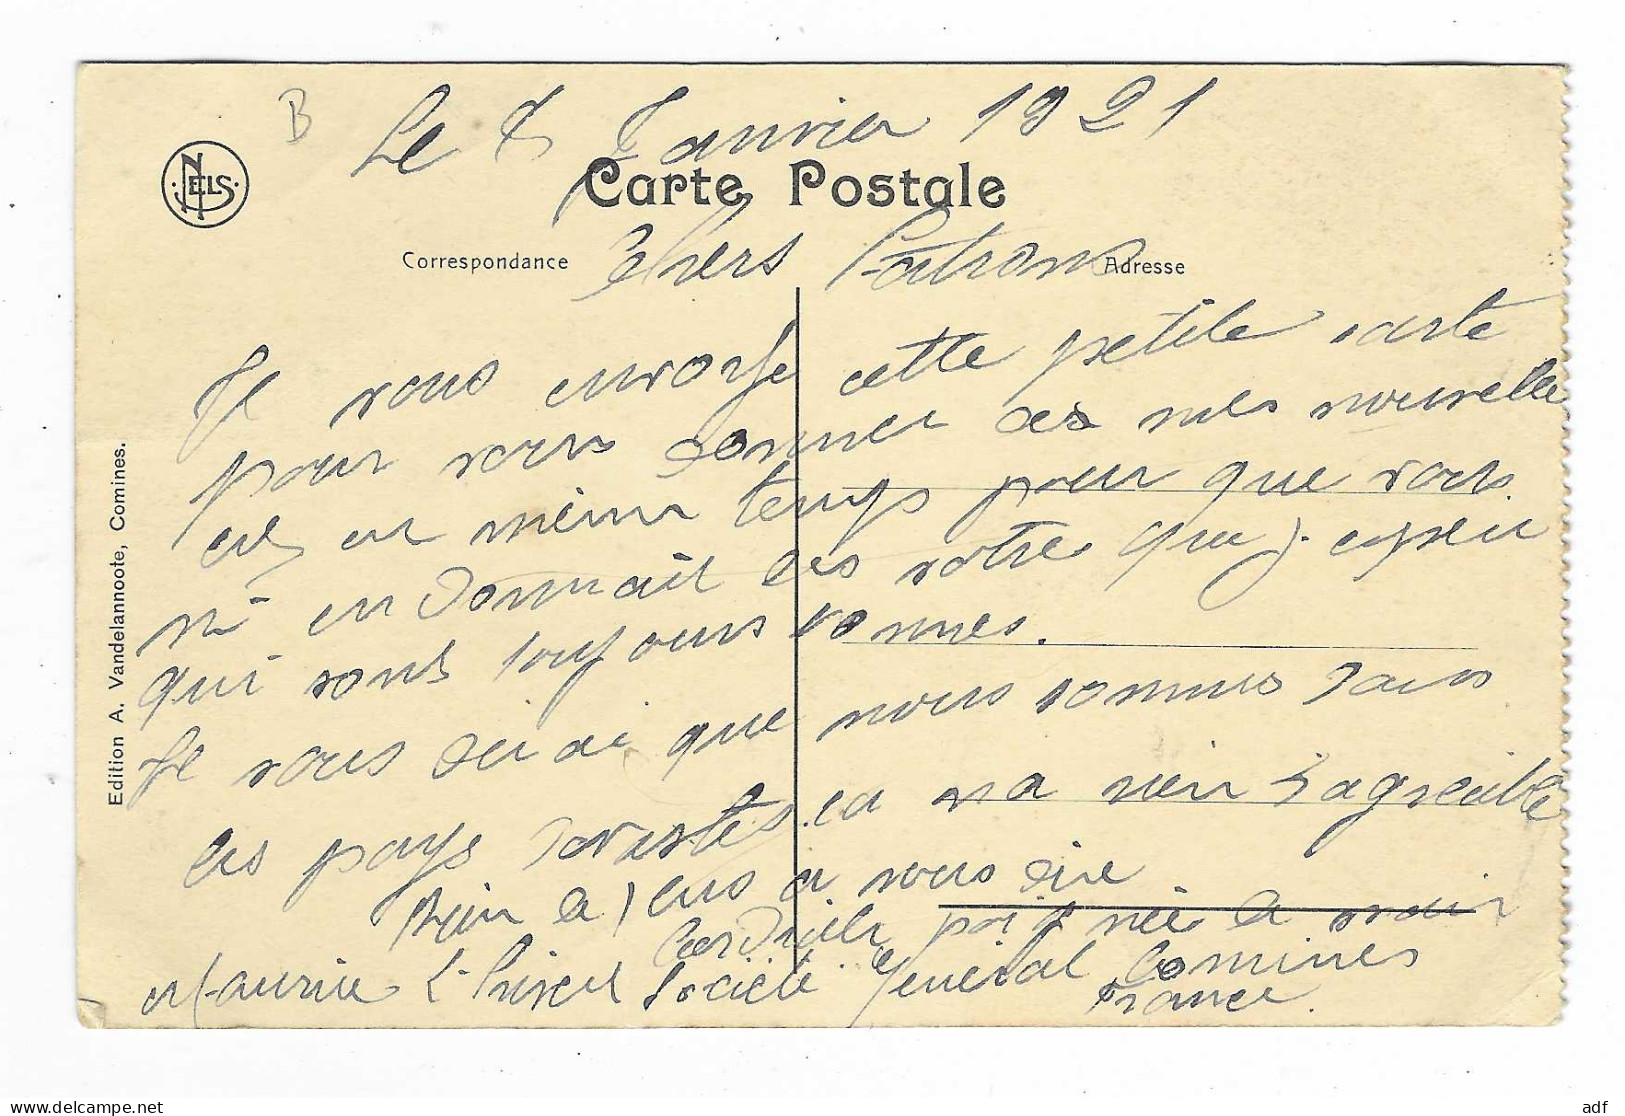 B
Le 8 Janvier 1921
NELS
Carte Postale
Correspondance
Chers Patrons
Adresse
Je vous envoye cette petite carte
pour vous donner des mes nouvelle
et en même temps pour que vous
m' en donnait des votre que j. espere
qui sont toujours bonnes.
Je vous dirai que nous sommes dans
les pays devastes. ca na rien d'agreable
Rien de plus a vous dire
Cordiale poignée de main
Maurice Société General Comines
France.
Edition A. Vandelannoote, Comines.
delcampe.net
adf